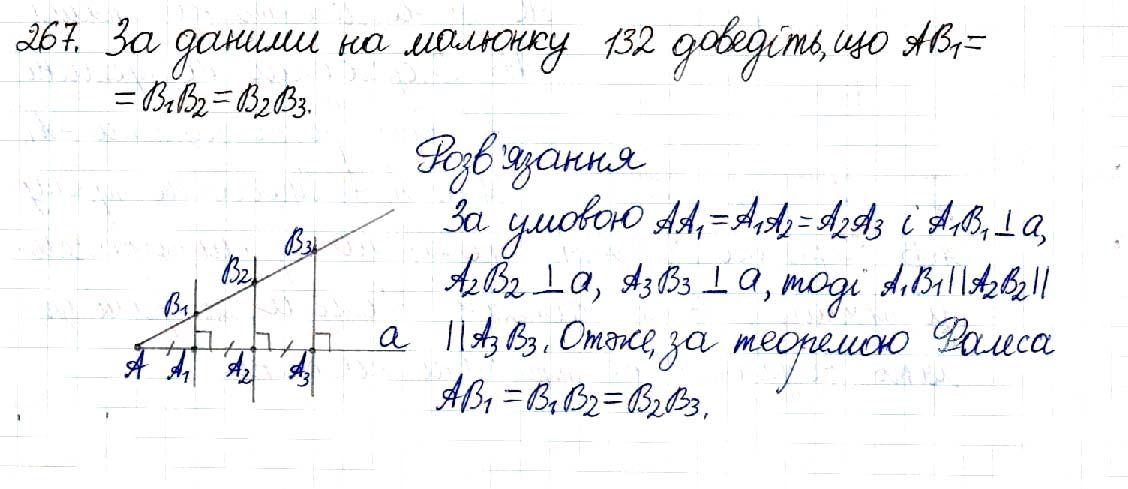 267. За даними на малюнку 132 доведіть, що AB₁=
= B₁B₂ = B₂B₃.
Розв'язання
За умовою AA₁ = A₁A₂ = A₂A₃ і A₁B₁ ⊥ a,
A₂B₂ ⊥ a, A₃B₃ ⊥ a, тоді A₁B₁ || A₂B₂ ||
|| A₃B₃. Отже, за теоремою Фалеса
AB₁ = B₁B₂ = B₂B₃.
B₃
B₂
B₁
a
A A₁ A₂ A₃